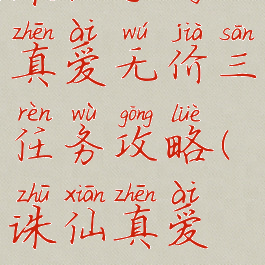 zhēn ài wú jià sān
真爱无价三
rèn wù gōng lüè
任务攻略(
zhū xiān zhēn ài
诛仙真爱